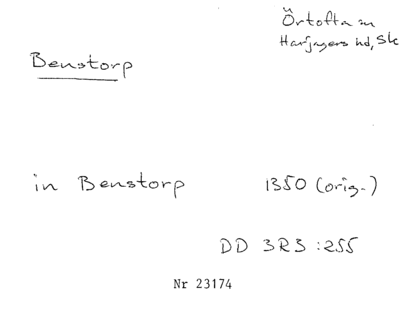 Örtofta sn
Harjagers hd, Sk
Benstorp
in Benstorp 1350 (orig.)
DD 3R3:255
Nr 23174